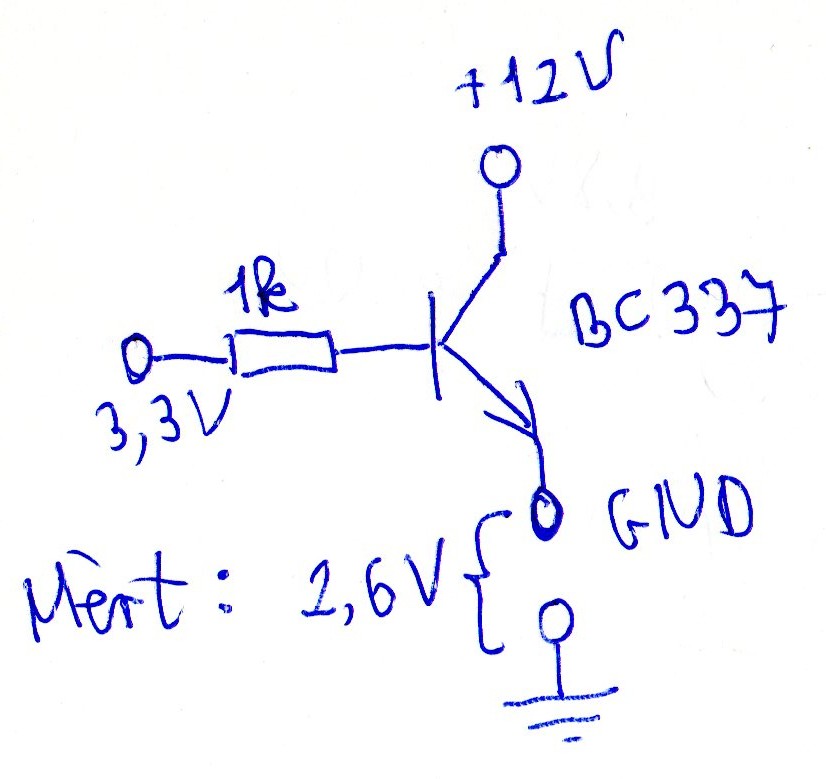 +12V
1k
BC337
3,3V
GND
Mért: 2,6V